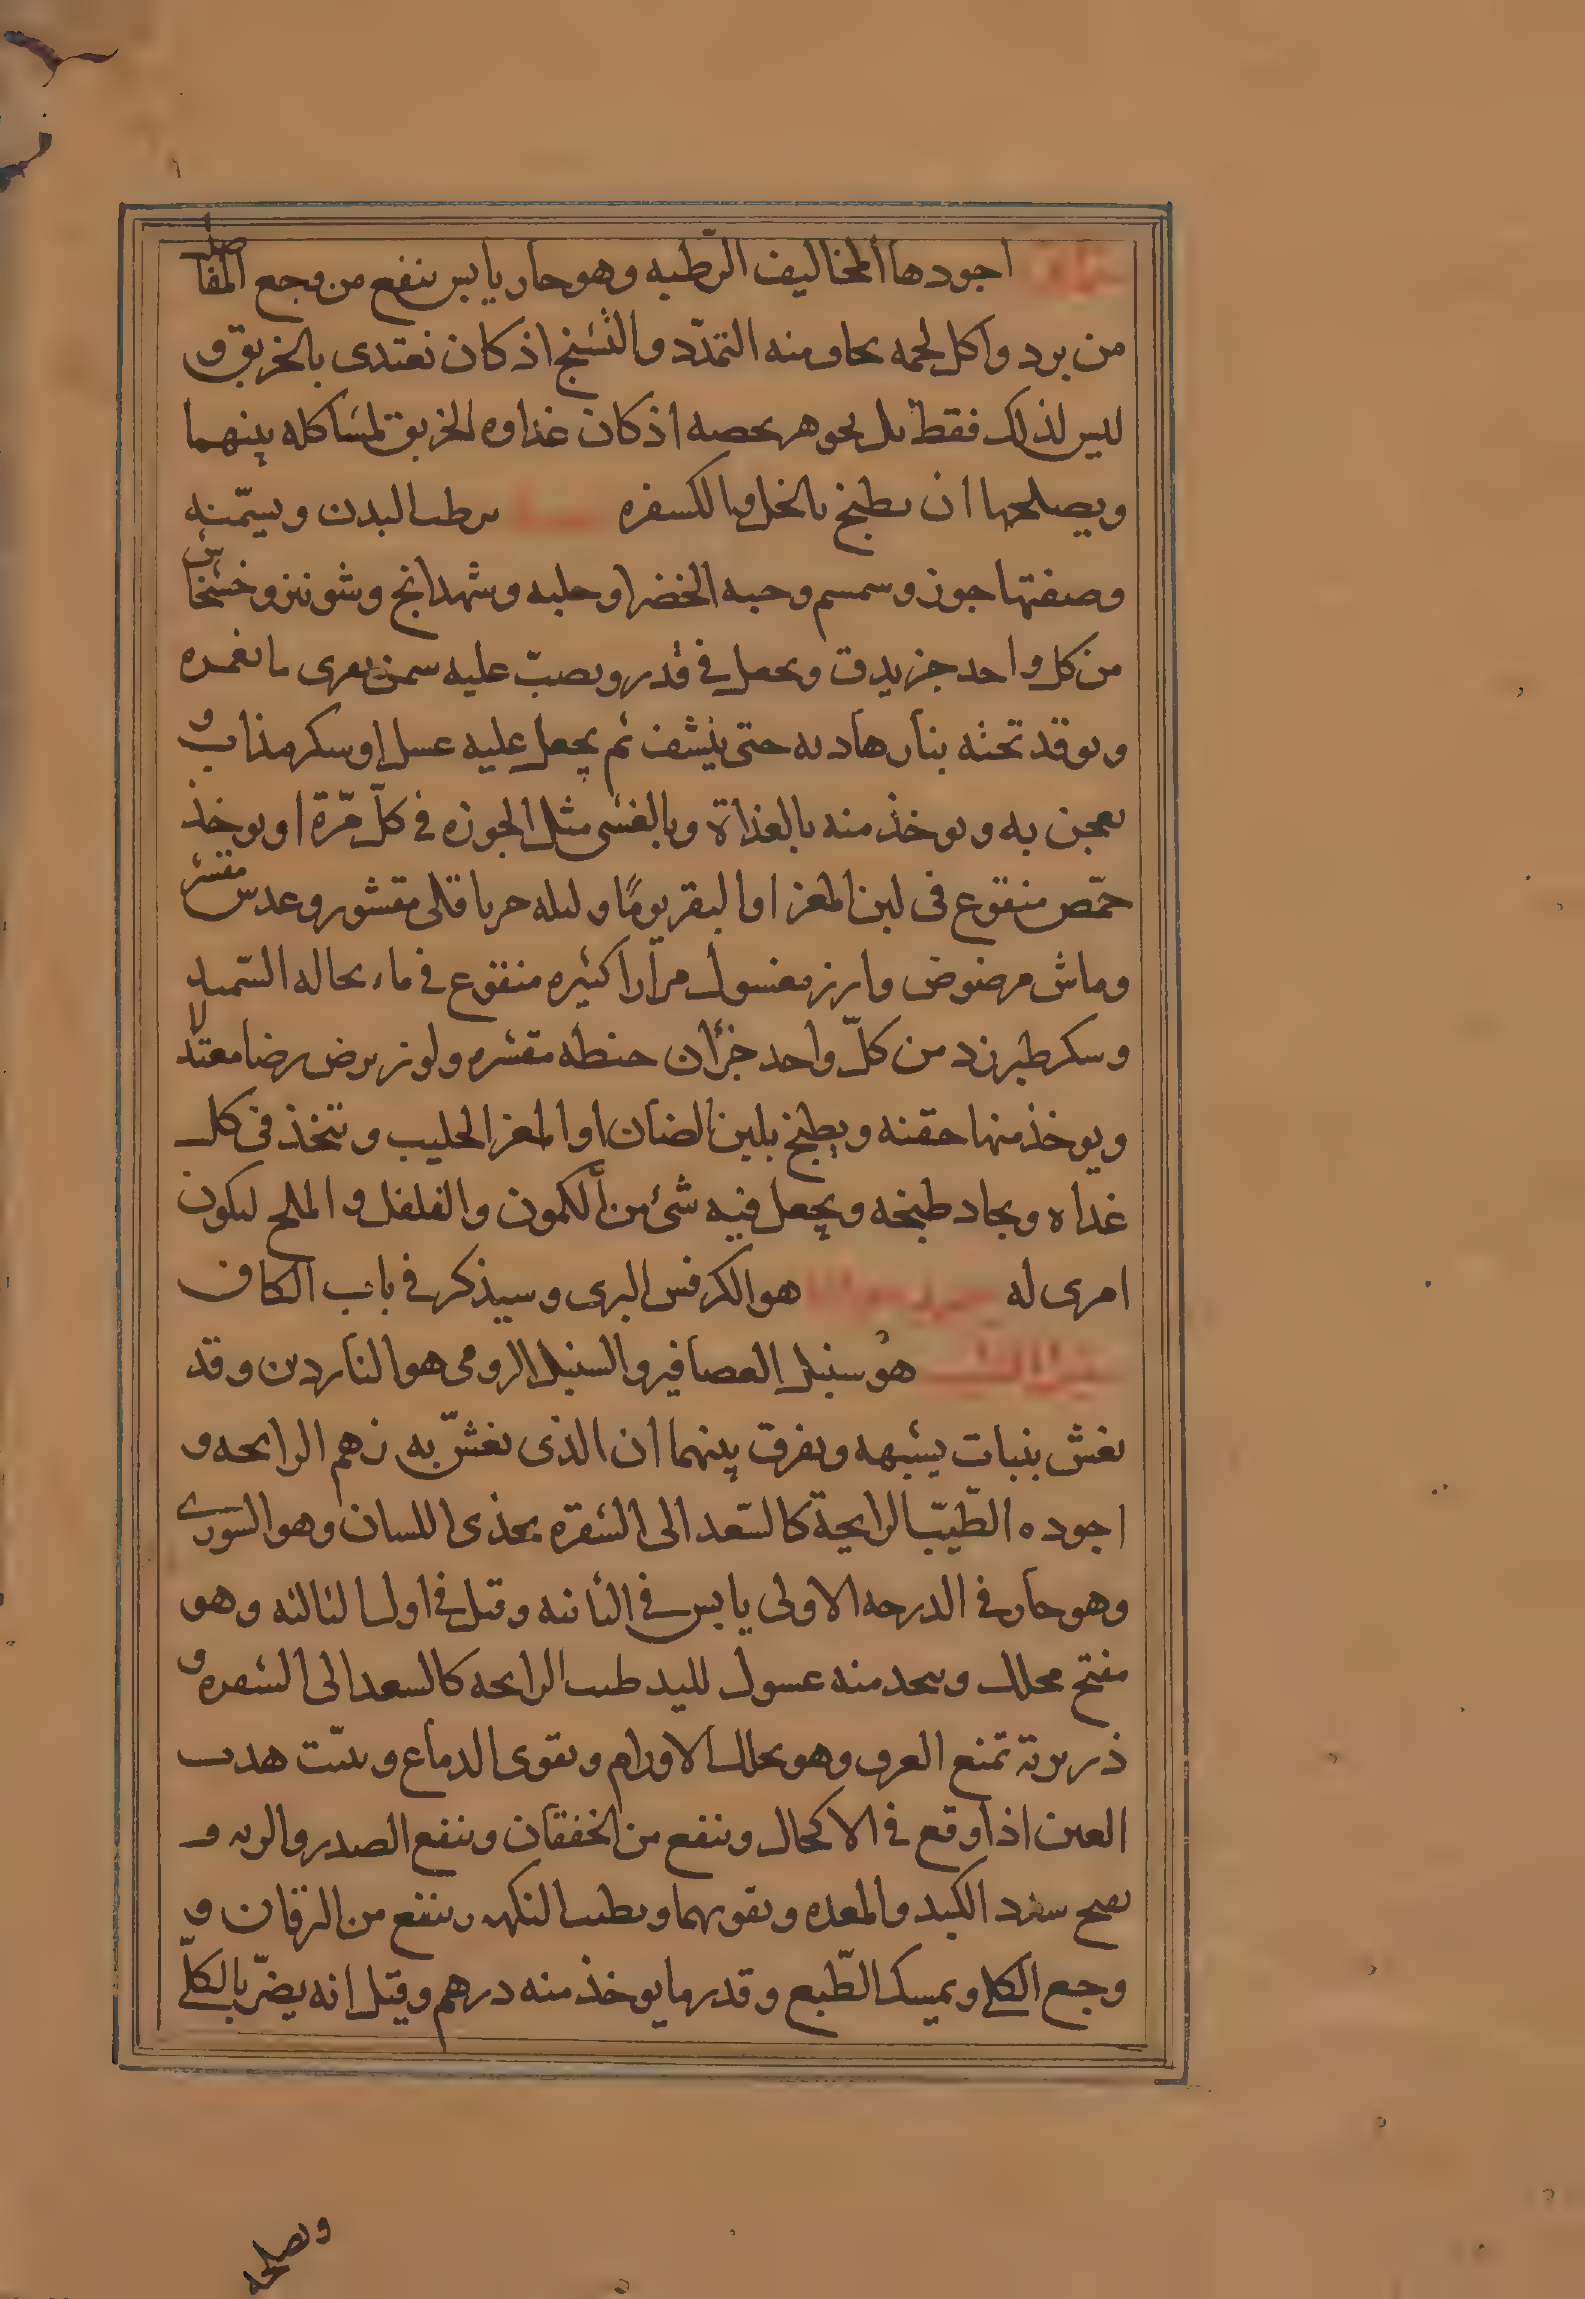 اجودها المخاليف الرطبه وهو حار يابس ينفع من وجع المفاصل
من برد واكل لحمه يخاف منه التمدّد والتشنج اذ كان يغتدى بالخربق و
ليس لذلك فقط بل بجوهر يخصه اذ كان غذاوه الخربق لمشاكله بينهما
ويصلحها ان يطبخ بالخل وبالكسفره يرطب البدن ويسمّنه
وصفتها جوز وسمسم وحبه الخضرا وحلبه وشهدانج وشونيز وخشخاش
من كل واحد جز يدق ويجعل في قدر ويصبّ عليه سمن بقرى ما يغمره
ويوقد تحته بنار هاديه حتى ينشف ثم يجعل عليه عسل او سكر مذاب و
يعجن به ويوخذ منه بالغداة وبالعشى مثل الجوزه في كلّ مرّة او يوخذ
حمّص منقوع فى لبن المعز او البقر يومًا وليله حر باقلى مقشور وعدس مقشر
وماش مرضوض وارز مغسول مرارا كثيره منقوع في ماء نخاله السّميد
وسكر طبرزد من كلّ واحد جزآن حنطه مقشره ولوز يرض رضا معتدلا
ويوخذ منها حفنه ويطبخ بلبن الضان او المعز الحليب ويتخذ فى كل
غداه ويجاد طبخه ويجعل فيه شئ من الكمون والفلفل و الملح ليكون
امرى له هو الكرفس البرى وسيذكر في باب الكاف
سنبل الطيب هو سنبل العصافير والسنبل الرومى هو الناردين وقد
يغش بنبات يشبهه ويفرق بينهما ان الذى يغشّ به زهم الرايحه و
اجوده الطّيّب الرايحة كالسّعد الى الشقرّه يحذى اللسان وهو السورى
وهو حار في الدرجه الاولى يابس في الثانيه وقيل في اول الثالثه وهو
مفتح محلل ويتخذ منه غسول لليد طيب الرايحه كالسعد الى الشقره و
ذريرته تمنع العرق وهو يحلل الاورام ويقوى الدماغ وينبّت هدب
العين اذا وقع في الاكحال وينفع من الخفقان وينفع الصدر والريه و
يفتح سدد الكبد والمعده ويقويهما ويطيب النكهه وينفع من اليرقان و
وجع الكلى ويمسك الطّبع وقدر ما يوخذ منه درهم وقيل انه يضرّ بالكلّى
ويصلحه